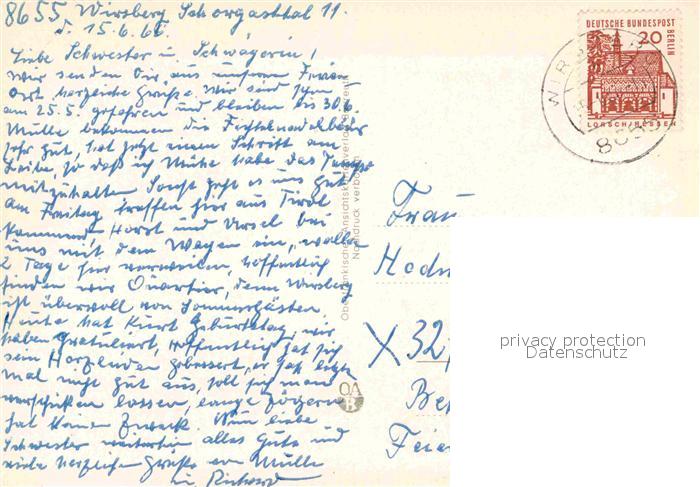 8655 Wirsberg Schorgasttal 11.
d. 15.6.66.
Liebe Schwester u. Schwägerin!
Wir senden Dir aus unserem Ferien
ort herzliche Grüße. Wir sind schon
am 25.5. gefahren und bleiben bis 30.6.
Mulle bekommen die Fichtennadelbäder
sehr gut, hat jetzt einen Schritt am
Leibe, so daß ich Mühe habe das Tempo
mitzuhalten. Sonst geht es uns gut.
Am Freitag treffen hier aus Tirol
kommend Horst und Ursel bei
uns mit dem Wagen ein, wollen
2 Tage hier verweilen, hoffentlich
finden wir Quartier, denn Wirsberg
ist übervoll von Sommergästen.
Heute hat Kurt Geburtstag, wir
haben gratuliert, hoffentlich hat sich
sein Herzleiden gebessert, er sah letzt
mal nicht gut aus, soll sich mal
verschicken lassen, lange zögern
hat keinen Zweck. Nun liebe
Schwester weiterhin alles Gute und
viele herzliche Grüße von Mulle
u. Richard
Oberfränkische Ansichtskartenverlag
Nachdruck verboten
OA
B
DEUTSCHE BUNDESPOST
BERLIN
20
LORSCH/HESSEN
WIR
865
Frau
Hedw
X 32
Be
Feie
privacy protection
Datenschutz